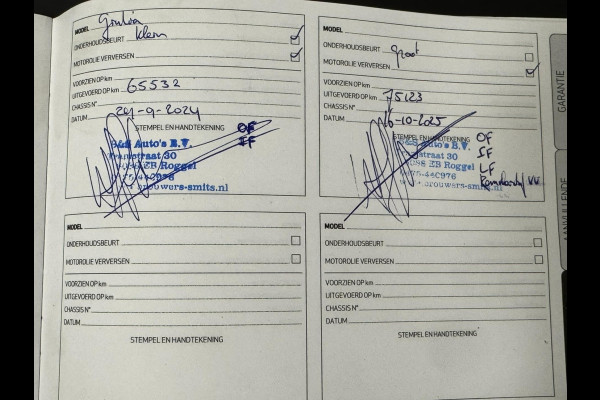 MODEL Giulia
ONDERHOUDSBEURT klein
MOTOROLIE VERVERSEN
VOORZIEN OP km
UITGEVOERD OP km 65532
CHASSIS N°
DATUM 24-9-2024
STEMPEL EN HANDTEKENING OF
B&S Auto's B.V. IF
straat 30
6088 EB Roggel
0475-440976
brouwers-smits.nl
MODEL
ONDERHOUDSBEURT groot
MOTOROLIE VERVERSEN
VOORZIEN OP km
UITGEVOERD OP km 75123
CHASSIS N°
DATUM 6-10-2025
STEMPEL EN HANDTEKENING OF
B&S Auto's B.V. IF
straat 30
6088 EB Roggel LF
0475-440976 VV
brouwers-smits.nl
MODEL
ONDERHOUDSBEURT
MOTOROLIE VERVERSEN
VOORZIEN OP km
UITGEVOERD OP km
CHASSIS N°
DATUM
STEMPEL EN HANDTEKENING
MODEL
ONDERHOUDSBEURT
MOTOROLIE VERVERSEN
VOORZIEN OP km
UITGEVOERD OP km
CHASSIS N°
DATUM
STEMPEL EN HANDTEKENING
GARANTIE
AANVULLENDE